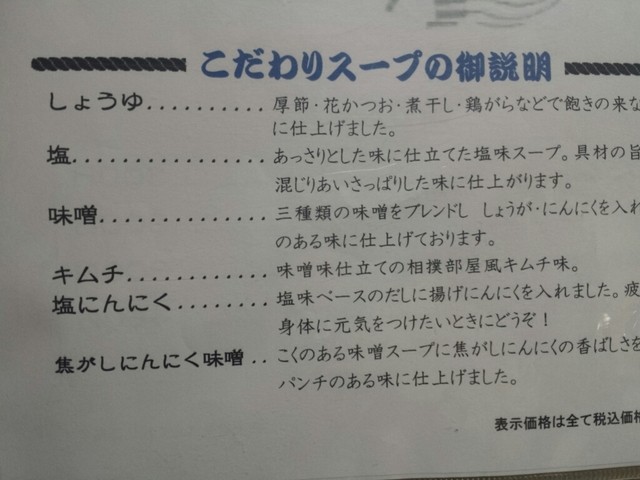 こだわりスープの御説明
しょうゆ.......... 厚節・花かつお・煮干し・鶏がらなどで飽きの来な
に仕上げました。
塩................ あっさりとした味に仕立てた塩味スープ。具材の旨
混じりあいさっぱりした味に仕上がります。
味噌.............. 三種類の味噌をブレンドし しょうが・にんにくを入れ
のある味に仕上げております。
キムチ............ 味噌味仕立ての相撲部屋風キムチ味。
塩にんにく........ 塩味ベースのだしに揚げにんにくを入れました。疲
身体に元気をつけたいときにどうぞ！
焦がしにんにく味噌.. こくのある味噌スープに焦がしにんにくの香ばしさを
パンチのある味に仕上げました。
表示価格は全て税込価格